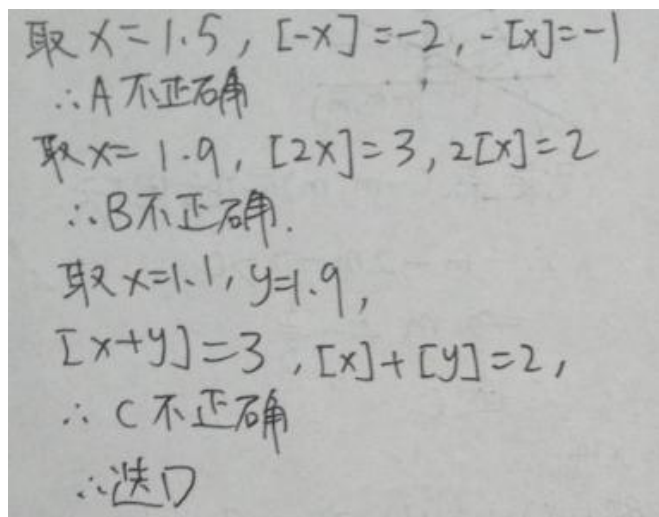 取 x=1.5, [-x]=-2, -[x]=-1
∴A 不正确
取x=1.9, [2x]=3, 2[x]=2
∴B不正确.
取x=1.1, y=1.9,
[x+y]=3, [x]+[y]=2,
∴ C 不正确
∴选D